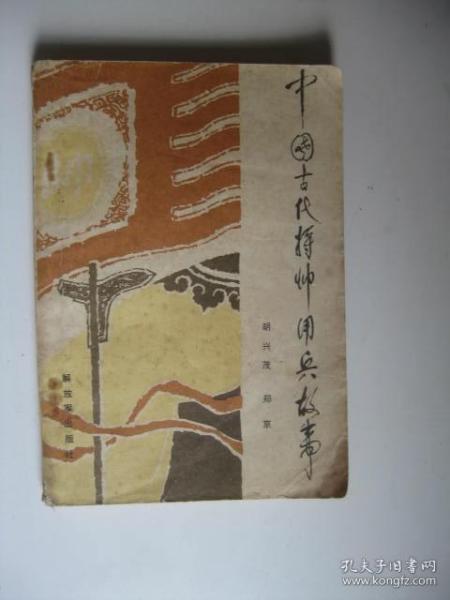 中国古代将帅用兵故事
胡兴茂 郑京
解放军出版社
孔夫子旧书网
www.kongfz.com